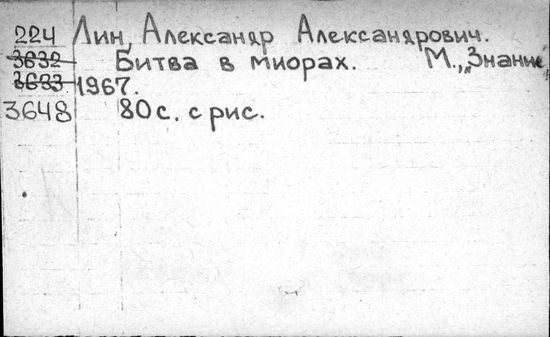 224 Лин, Александр Александрович.
3632 Битва в миорах. М., „Знание"
3633 1967.
3648 80 с. с рис.